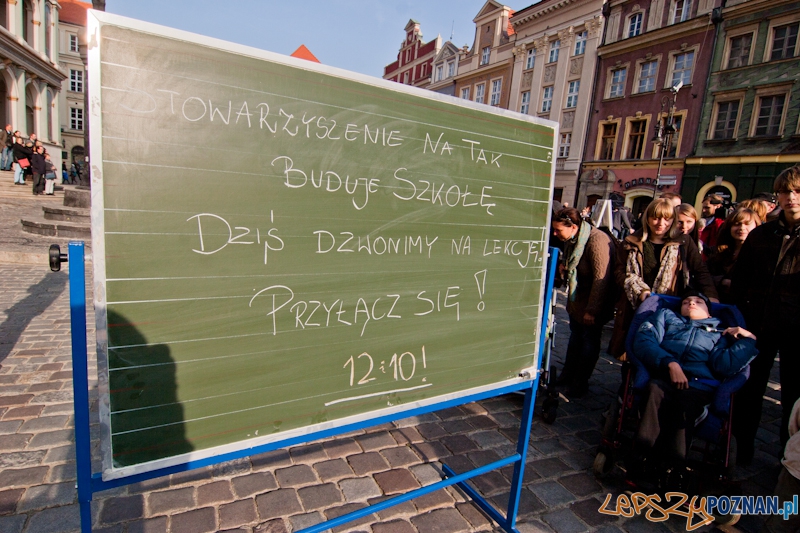 STOWARZYSZENIE NA TAK
BUDUJE SZKOŁĘ
DZIŚ DZWONIMY NA LEKCJĘ.
PRZYŁĄCZ SIĘ!
12:10!
LEPSZYPOZNAN.pl